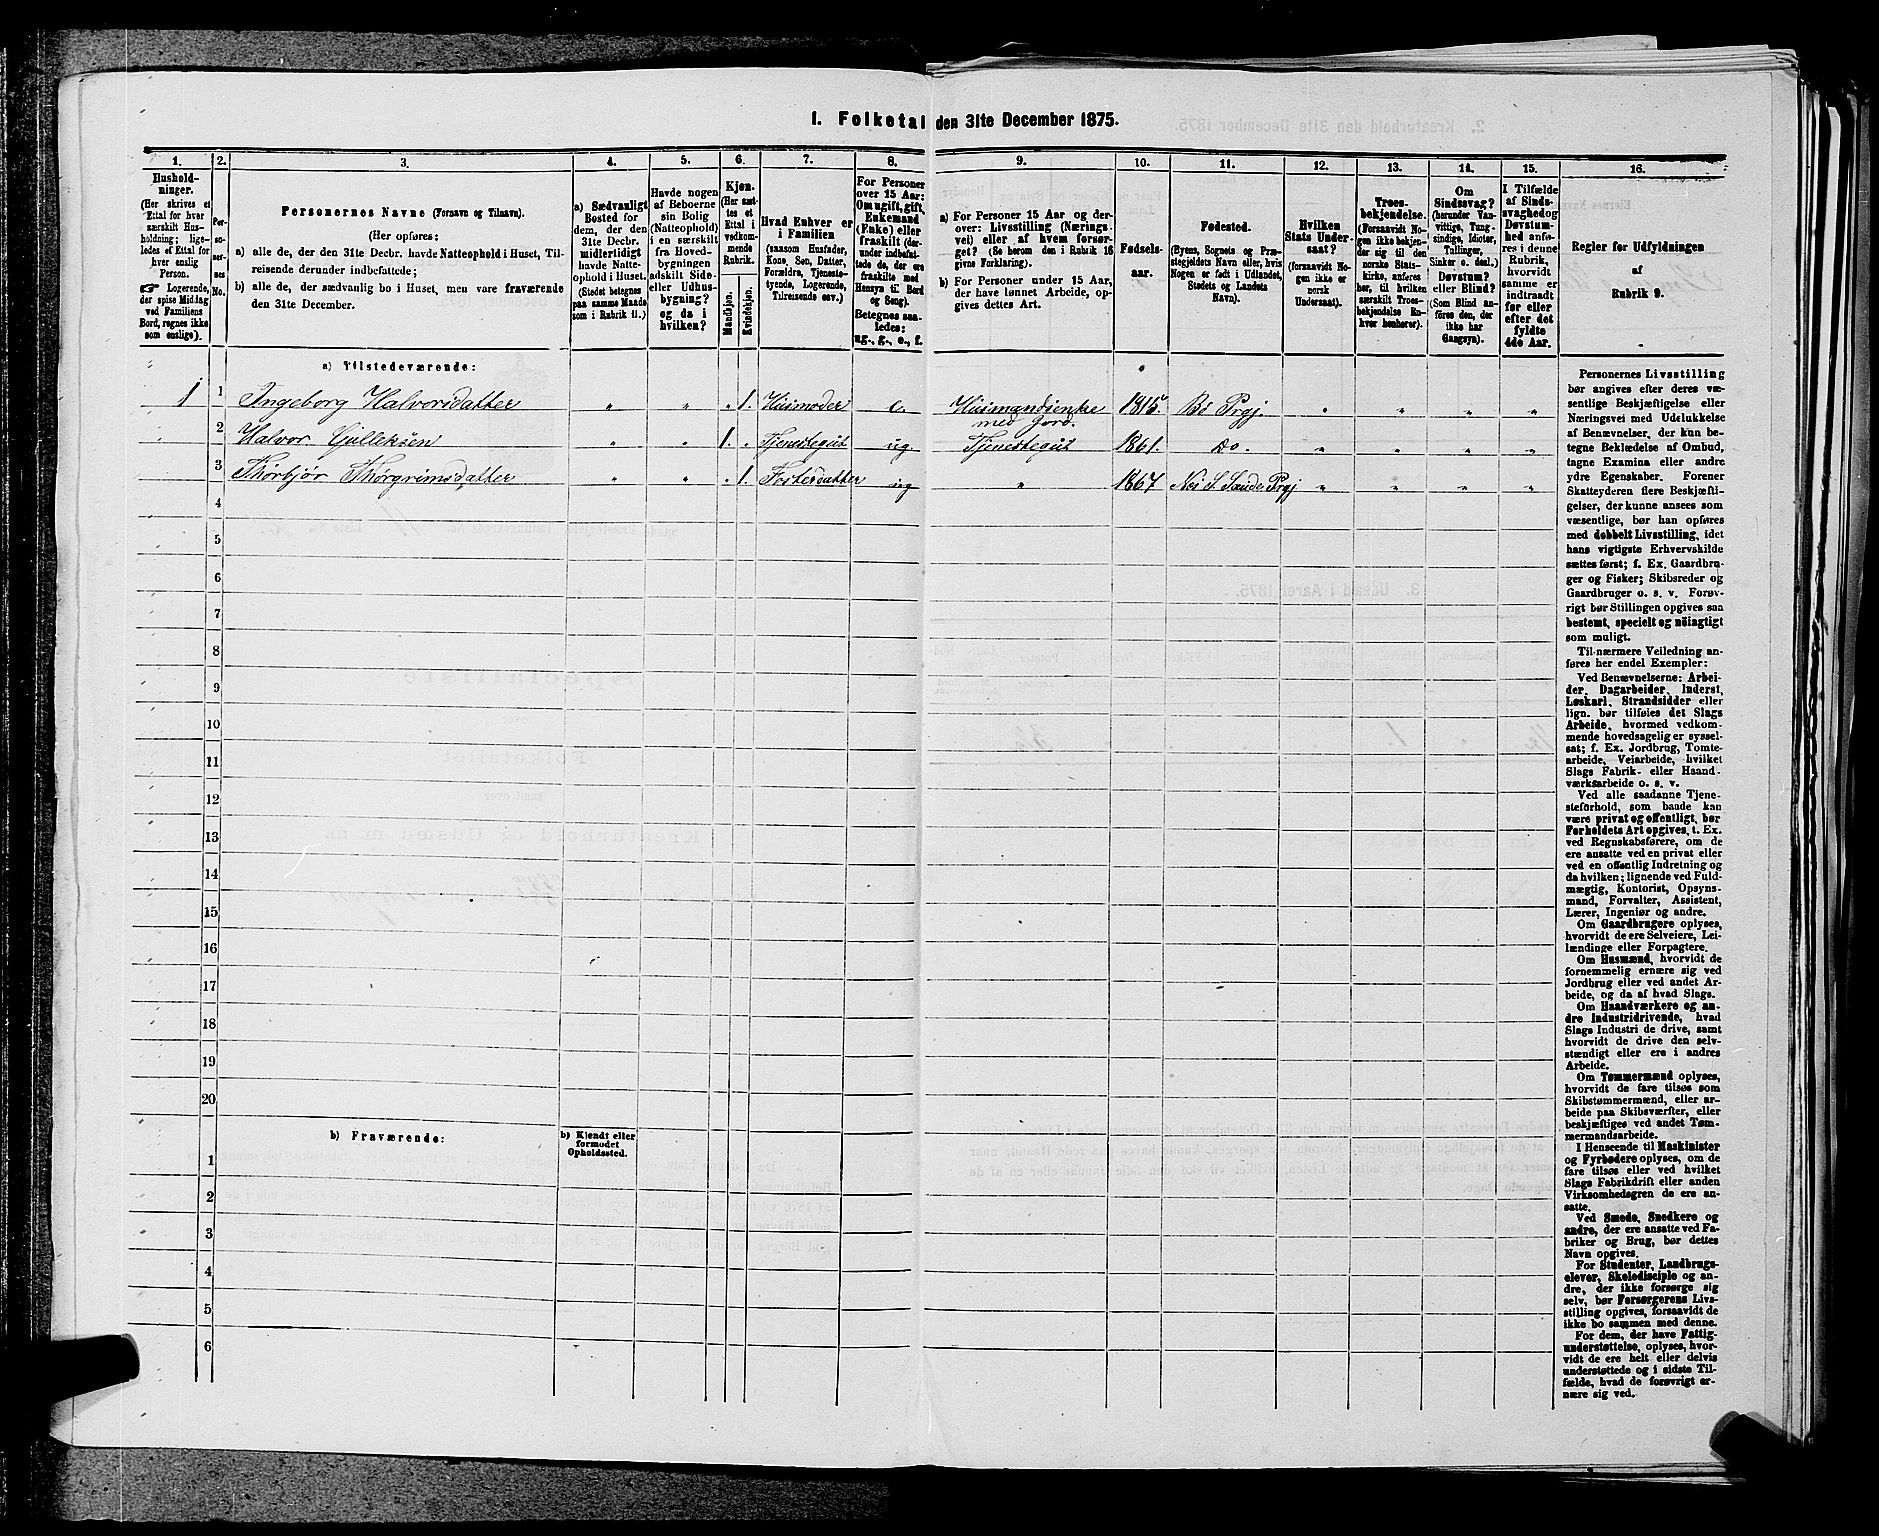 I. Folketal den 31te December 1875.
1. 2. 3. 4. 5. 6. 7. 8. 9. 10. 11. 12. 13. 14. 15. 16.
Hushold-
ninger.
(Her skrives et
Ettal for hver
særskilt Hus-
holdning; lige-
ledes et Ettal for
hver enslig
Person.
☛ Logerende,
der spise Middag
ved Familiens
Bord, regnes ikke
som enslige).
Per-
so-
ner-
nes
No.
Personernes Navne (Fornavn og Tilnavn).
(Her opføres:
a) alle de, der den 31te Decbr. havde Natteophold i Huset, Til-
reisende derunder indbefattede;
b) alle de, der sædvanlig bo i Huset, men vare fraværende
den 31te December.
a) Sædvanligt
Bosted for
dem, der den
31te Decbr.
midlertidigt
havde Natte-
ophold i Huset.
(Stedet betegnes
paa samme Maade
som i Rubrik 11.)
Havde nogen
af Beboerne
sin Bolig
(Natteophold)
i en særskilt
fra Hoved-
bygningen
adskilt Side-
eller Udhus-
bygning?
og da i
hvilken?
Kjøn.
(Her sæt-
tes et
Ettal i
vedkom-
mende
Rubrik.
Mandkjøn.
Kvindekjøn.
Hvad Enhver er
i Familien
(saasom Husfader,
Kone, Søn, Datter,
Forældre, Tjeneste-
tyende, Logerende,
Tilreisende osv.)
For Personer
over 15 Aar:
Om ugift, gift,
Enkemand
(Enke) eller
fraskilt (der-
under indbefat-
tede de, der ere
fraskilte med
Hensyn til Bord
og Seng).
Betegnes saa-
ledes:
ug., g., e., f.
a) For Personer 15 Aar og der-
over: Livsstilling (Nærings-
vei) eller af hvem forsør-
get? (Se herom den i Rubrik 16
givne Forklaring).
b) For Personer under 15 Aar,
der have lønnet Arbeide, op-
gives dettes Art.
Fødsels-
aar.
Fødested.
(Byens, Sognets og Præ-
stegjeldets Navn eller, hvis
Nogen er født i Udlandet,
Stedets og Landets
Navn).
Hvilken
Stats Under-
saat?
(forsaavidt No-
gen ikke er
norsk
Undersaat).
Troes-
bekjendelse.
(Forsaavidt No-
gen ikke bekjen-
der sig til den
norske Stats-
kirke, anføres
her, til hvilken
særskilt Troes-
bekjendelse En-
hver henhører).
Om
Sindssvag?
(herunder Van-
vittige, Tung-
sindige, Idioter,
Tullinger,
Sinker o. desl.)
Døvstum?
eller Blind?
(Som Blind an-
føres den, der
ikke har
Gangsyn).
I Tilfælde
af Sinds-
svaghed og
Døvstum-
hed anfø-
res i denne
Rubrik,
hvorvidt
samme er
indtraadt
før eller
efter det
fyldte
4de Aar.
Regler for Udfyldningen
af
Rubrik 9.
a) Tilstedeværende:
1 1 Ingeborg Halvorsdatter " " " 1. Husmoder e. Husmandsenke 1815 Bø Prgj. " " " "
med Jord.
2 Halvor Gulleksen " " 1. " Tjenestegut ug. Tjenestegut 1861. Do. " " " "
3 Thorbjør Thorgrimsdatter " " " 1. Fosterdatter ug " 1867 Nes S. Saude Prgj " " " "
4
5
6
7
8
9
10
11
12
13
14
15
16
17
18
19
20
b) Fraværende:
b) Kjendt eller
formodet
Opholdssted.
1
2
3
4
5
6
Personernes Livsstilling
bør angives efter deres væ-
sentlige Beskjæftigelse eller
Næringsvei med Udelukkelse
af Benævnelser, der kun be-
tegne Beklædelse af Ombud,
tagne Examina eller andre
ydre Egenskaber. Forener
Skatteyderen flere Beskjæfti-
gelser, der kunne ansees som
væsentlige, bør han opføres
med dobbelt Livsstilling, idet
hans vigtigste Erhvervskilde
sættes først; f. Ex. Gaardbru-
ger og Fisker; Skibsreder og
Gaardbruger o. s. v. Forøv-
rigt bør Stillingen opgives saa
bestemt, specielt og nøiagtigt
som muligt.
Til nærmere Veiledning an-
føres her endel Exempler:
Ved Benævnelserne: Arbei-
der, Dagarbeider, Inderst,
Løskarl, Strandsidder eller
lign. bør tilføies det Slags
Arbeide, hvormed vedkom-
mende hovedsagelig er syssel-
sat; f. Ex. Jordbrug, Tomte-
arbeide, Veiarbeide, hvilket
Slags Fabrik- eller Haand-
værksarbeide o. s. v.
Ved alle saadanne Tjene-
steforhold, som baade kan
være privat og offentligt, bør
Forholdets Art opgives, t. Ex.
ved Regnskabsførere, om de
ere ansatte ved en privat eller
ved en offentlig Indretning og
da hvilken; lignende ved Fuld-
mægtig, Kontorist, Opsyns-
mand, Forvalter, Assistent,
Lærer, Ingeniør og andre.
Om Gaardbrugere oplyses,
hvorvidt de ere Selveiere, Lei-
lændinge eller Forpagtere.
Om Husmænd, hvorvidt de
fornemmelig ernære sig ved
Jordbrug eller ved andet Ar-
beide, og da af hvad Slags.
Om Haandværkere og an-
dre Industridrivende, hvad
Slags Industri de drive, samt
hvorvidt de drive den selv-
stændigt eller ere i andres
Arbeide.
Om Tømmermænd oplyses,
hvorvidt de fare tilsøs som
Skibstømmermænd, eller ar-
beide paa Skibsværfter, eller
beskjæftiges ved andet Tøm-
mermandsarbeide.
I Henseende til Maskinister
og Fyrbødere oplyses, om de
fare tilsøs eller ved hvilket
Slags Fabrikdrift eller anden
Virksomhedsgren de ere an-
satte.
Ved Smede, Snedkere og
andre, der ere ansatte ved Fa-
briker og Brug, bør dettes
Navn opgives.
For Studenter, Landbrugs-
elever, Skoledisciple og an-
dre, der ikke forsørge sig
selv, bør Forsørgerens Livs-
stilling opgives, forsaavidt de
ikke bo sammen med denne.
For dem, der have Fattig-
understøttelse, oplyses, hvor-
vidt de ere helt eller delvis
understøttede og i sidste Til-
fælde, hvad de forøvrigt er-
nære sig ved.